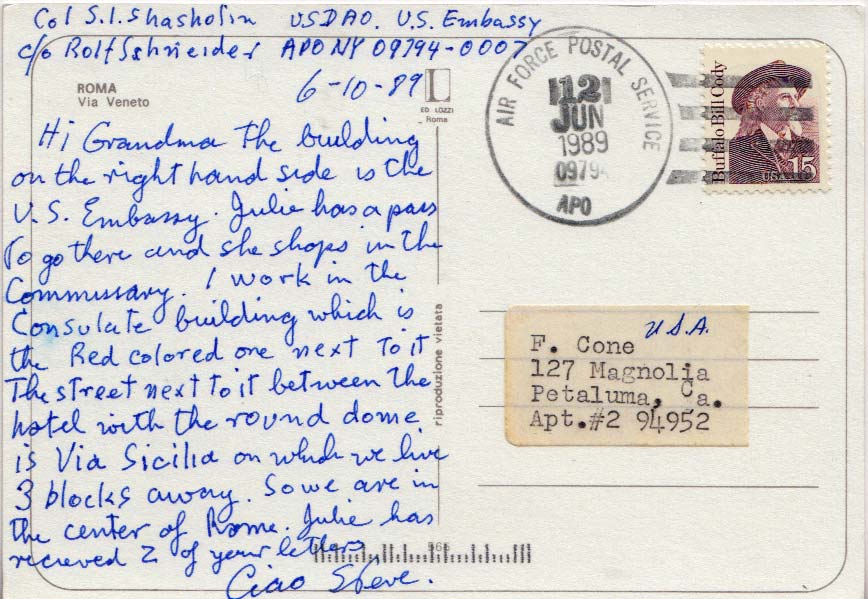 Col S.I. Shasholin USDAO. U.S. Embassy
c/o Rolf Schneider APO NY 09794-0007
6-10-89
ROMA
Via Veneto
ED. LOZZI
Roma
Hi Grandma the building
on the right hand side is the
U.S. Embassy. Julie has a pass
to go there and she shops in the
Commissary. I work in the
Consulate building which is
the Red colored one next to it
The street next to it between the
hotel with the round dome
is Via Sicilia on which we live
3 blocks away. So we are in
the center of Rome. Julie has
recieved 2 of your letters
Ciao Steve.
riproduzione vietata
566
AIR FORCE POSTAL SERVICE
12
JUN
1989
09794
APO
Buffalo Bill Cody
USA 15
U.S.A.
F. Cone
127 Magnolia
Petaluma, Ca.
Apt.#2 94952